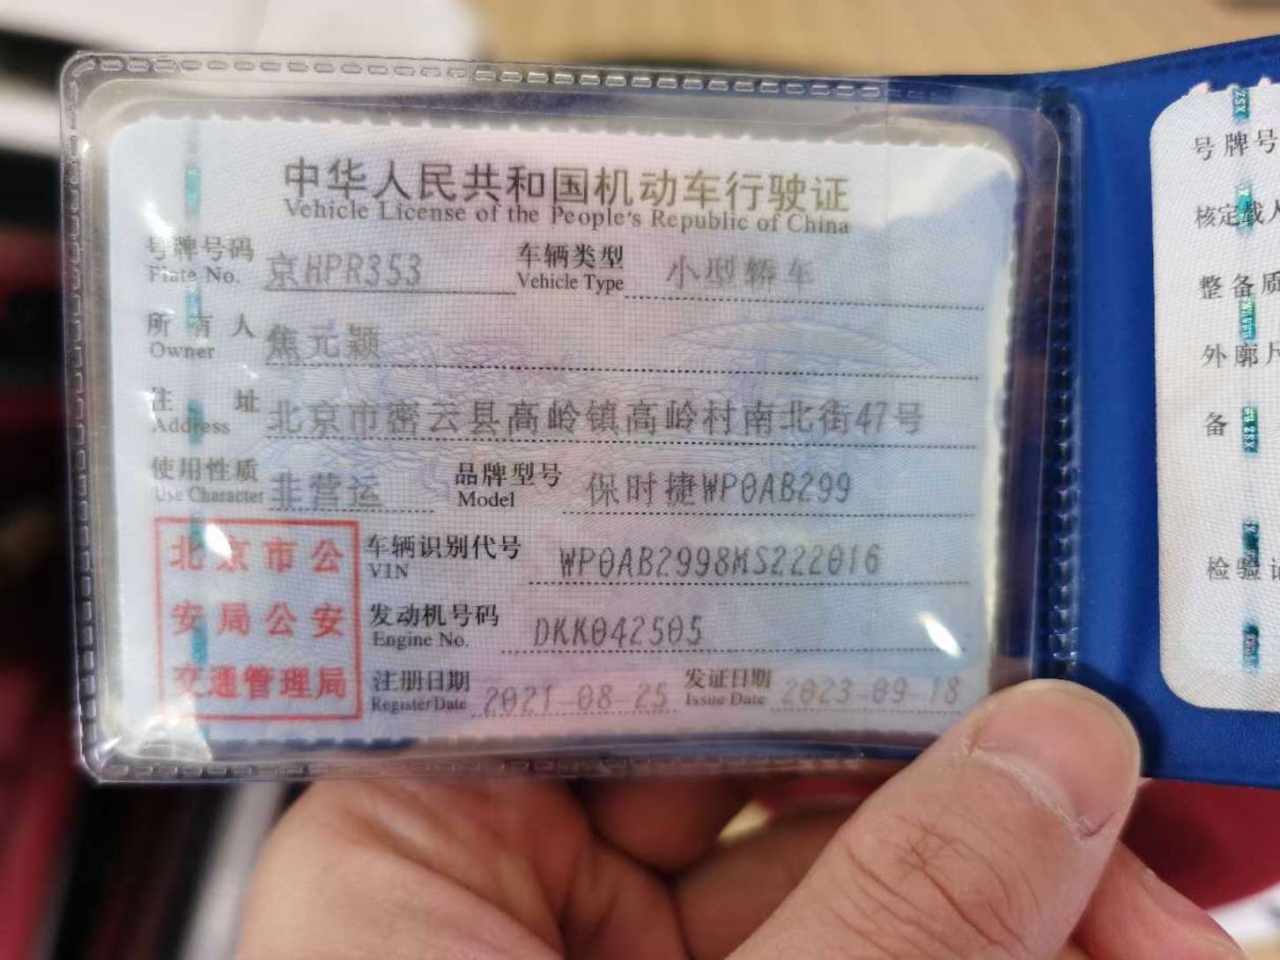 中华人民共和国机动车行驶证
Vehicle License of the People's Republic of China
号牌号码 京HPR353 车辆类型 小型轿车
Plate No. Vehicle Type
所有人 焦元颖
Owner
住址 北京市密云县高岭镇高岭村南北街47号
Address
使用性质 非营运 品牌型号 保时捷WP0AB299
Use Character Model
北京市公
安局公安
交通管理局
车辆识别代号 WP0AB2998MS222016
VIN
发动机号码 DKK042505
Engine No.
注册日期 2021-08-25 发证日期 2023-09-18
Register Date Issue Date
号牌号
核定载人
整备质
外廓尺
备
检验记